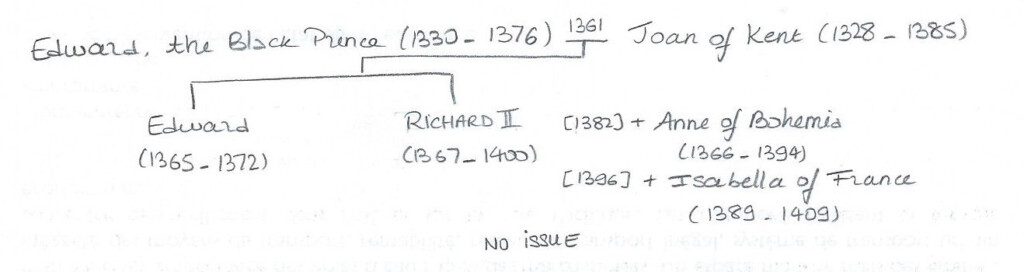 Edward, the Black Prince (1330 - 1376) 1361 Joan of Kent (1328 - 1385)
Edward RICHARD II [1382] + Anne of Bohemia
(1365 - 1372) (1367 - 1400) (1366 - 1394)
[1396] + Isabella of France
(1389 - 1409)
NO ISSUE